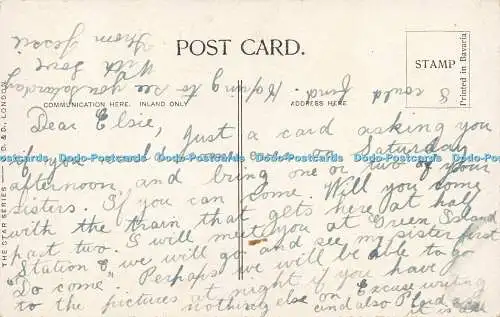 POST CARD.
STAMP
Printed in Bavaria
COMMUNICATION HERE. INLAND ONLY
ADDRESS HERE
THE STAR SERIES — G. D. & D., LONDON
Dear Elsie, Just a card asking you
if you could come out on Saturday
afternoon, and bring one or two of your
sisters. If you can come. Will you come
with the train that gets here at half
past two. I will meet you at Green Island
Station & we will go and see my sister first
Do come. Perhaps we will be able to go
to the pictures at night if you have
nothing else on Excuse writing
and also
it is all
I could find. Hoping to see you Saturday
With love
from Jessie
Dodo-Postcards Dodo-Postcards Dodo-Postcards Dodo-Postcards Dodo-Postcards